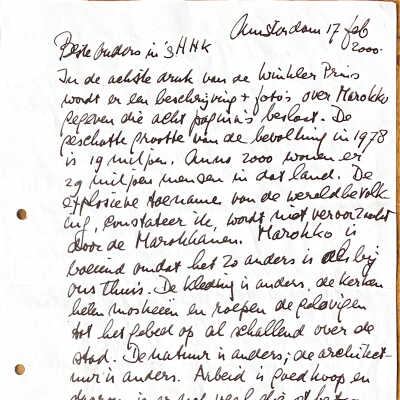 Amsterdam 17 feb
2000.
Beste ouders in 's HHK
In de achtste druk van de Winkler Prins
wordt er een beschrijving + foto's over Marokko
gegeven die acht pagina's beslaat. De
geschatte grootte van de bevolking in 1978
is 19 miljoen. Anno 2000 wonen er
29 miljoen mensen in dat land. De
explosieve toename van de wereldbevolk-
ing, constateer ik, wordt niet veroorzaakt
door de Marokkanen. Marokko is
boeiend omdat het zo anders is als bij
ons thuis. De kleding is anders, de kerken
heten moskeeën en roepen de gelovigen
tot het gebed op al schallend over de
stad. De natuur is anders; de architect-
uur is anders. Arbeid is goedkoop en
daarom is er nog veel